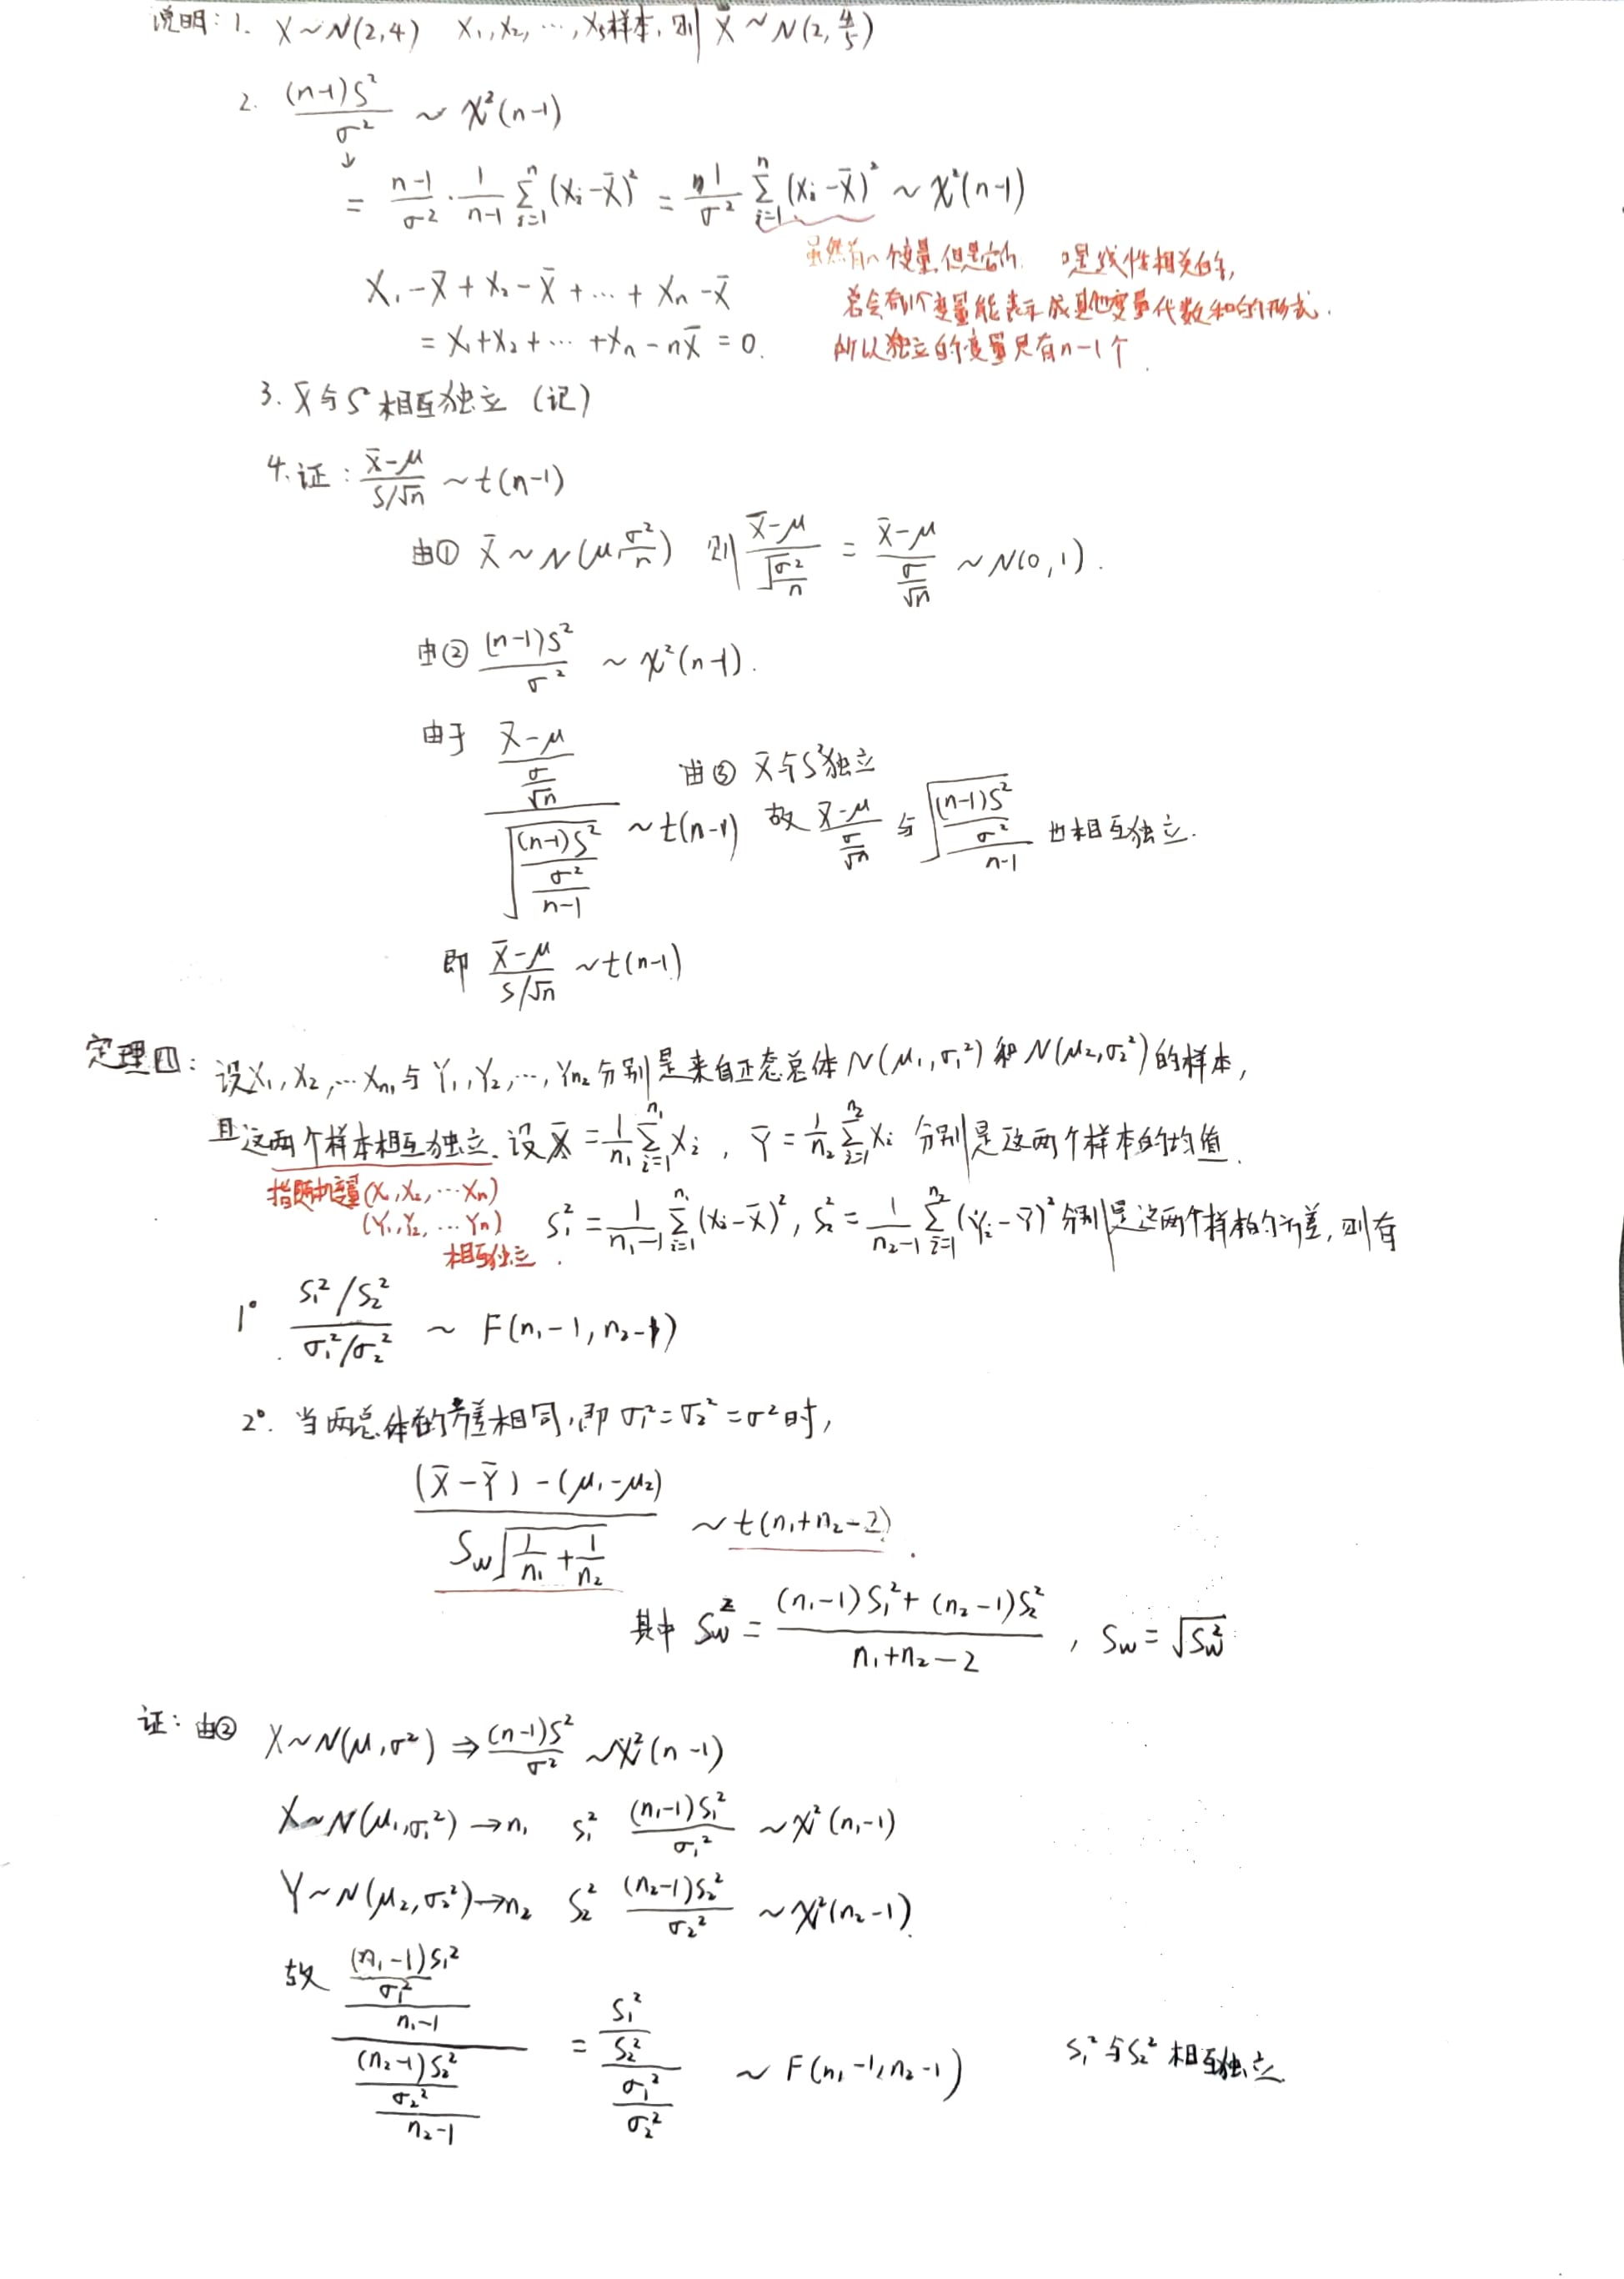 说明: 1. X~N(2,4) X₁,X₂,…,X₅样本,则 X̄~N(2,4/5)
2. (n-1)S²/σ² ~ χ²(n-1)
↓
= (n-1)/σ² · 1/(n-1) ∑ᵢ₌₁ⁿ (Xᵢ-X̄)² = 1/σ² ∑ᵢ₌₁ⁿ (Xᵢ-X̄)² ~ χ²(n-1)
虽然有n个变量,但是它们 是线性相关的,
X₁-X̄+X₂-X̄+…+Xn-X̄
总会有1个变量能表示成其他变量代数和的形式.
= X₁+X₂+…+Xn-nX̄=0.
所以独立的变量只有n-1个.
3. X̄与S²相互独立 (记)
4. 证: (X̄-μ)/(S/√n) ~ t(n-1)
由① X̄~N(μ,σ²/n) 则 (X̄-μ)/√(σ²/n) = (X̄-μ)/(σ/√n) ~ N(0,1).
由② (n-1)S²/σ² ~ χ²(n-1).
由③ X̄与S²独立
由于 ((X̄-μ)/(σ/√n)) / √(((n-1)S²/σ²)/(n-1)) ~ t(n-1) 故 (X̄-μ)/(σ/√n) 与 √(((n-1)S²/σ²)/(n-1)) 也相互独立.
即 (X̄-μ)/(S/√n) ~ t(n-1)
定理四: 设X₁,X₂,…Xn₁与Y₁,Y₂,…,Yn₂分别是来自正态总体N(μ₁,σ₁²)和N(μ₂,σ₂²)的样本,
且这两个样本相互独立.设X̄=1/n₁ ∑ᵢ₌₁ⁿ¹ Xᵢ, Ȳ=1/n₂ ∑ᵢ₌₁ⁿ² Xᵢ 分别是这两个样本的均值.
指随机变量(X₁,X₂,…Xn)
(Y₁,Y₂,…Yn)
相互独立.
S₁²=1/(n₁-1) ∑ᵢ₌₁ⁿ¹ (Xᵢ-X̄)², S₂²=1/(n₂-1) ∑ᵢ₌₁ⁿ² (Yᵢ-Ȳ)² 分别是这两个样本的方差,则有
1° (S₁²/S₂²)/(σ₁²/σ₂²) ~ F(n₁-1,n₂-1)
2°. 当两总体的方差相同,即σ₁²=σ₂²=σ²时,
((X̄-Ȳ)-(μ₁-μ₂))/(Sw√(1/n₁+1/n₂)) ~ t(n₁+n₂-2).
其中 Sw²=((n₁-1)S₁²+(n₂-1)S₂²)/(n₁+n₂-2), Sw=√Sw²
证: 由② X~N(μ,σ²) ⇒ (n-1)S²/σ² ~ χ²(n-1)
X~N(μ₁,σ₁²)→n₁ S₁² (n₁-1)S₁²/σ₁² ~ χ²(n₁-1)
Y~N(μ₂,σ₂²)→n₂ S₂² (n₂-1)S₂²/σ₂² ~ χ²(n₂-1).
故 (((n₁-1)S₁²/σ₁²)/(n₁-1)) / (((n₂-1)S₂²/σ₂²)/(n₂-1)) = (S₁²/S₂²)/(σ₁²/σ₂²) ~ F(n₁-1,n₂-1) S₁²与S₂²相互独立.